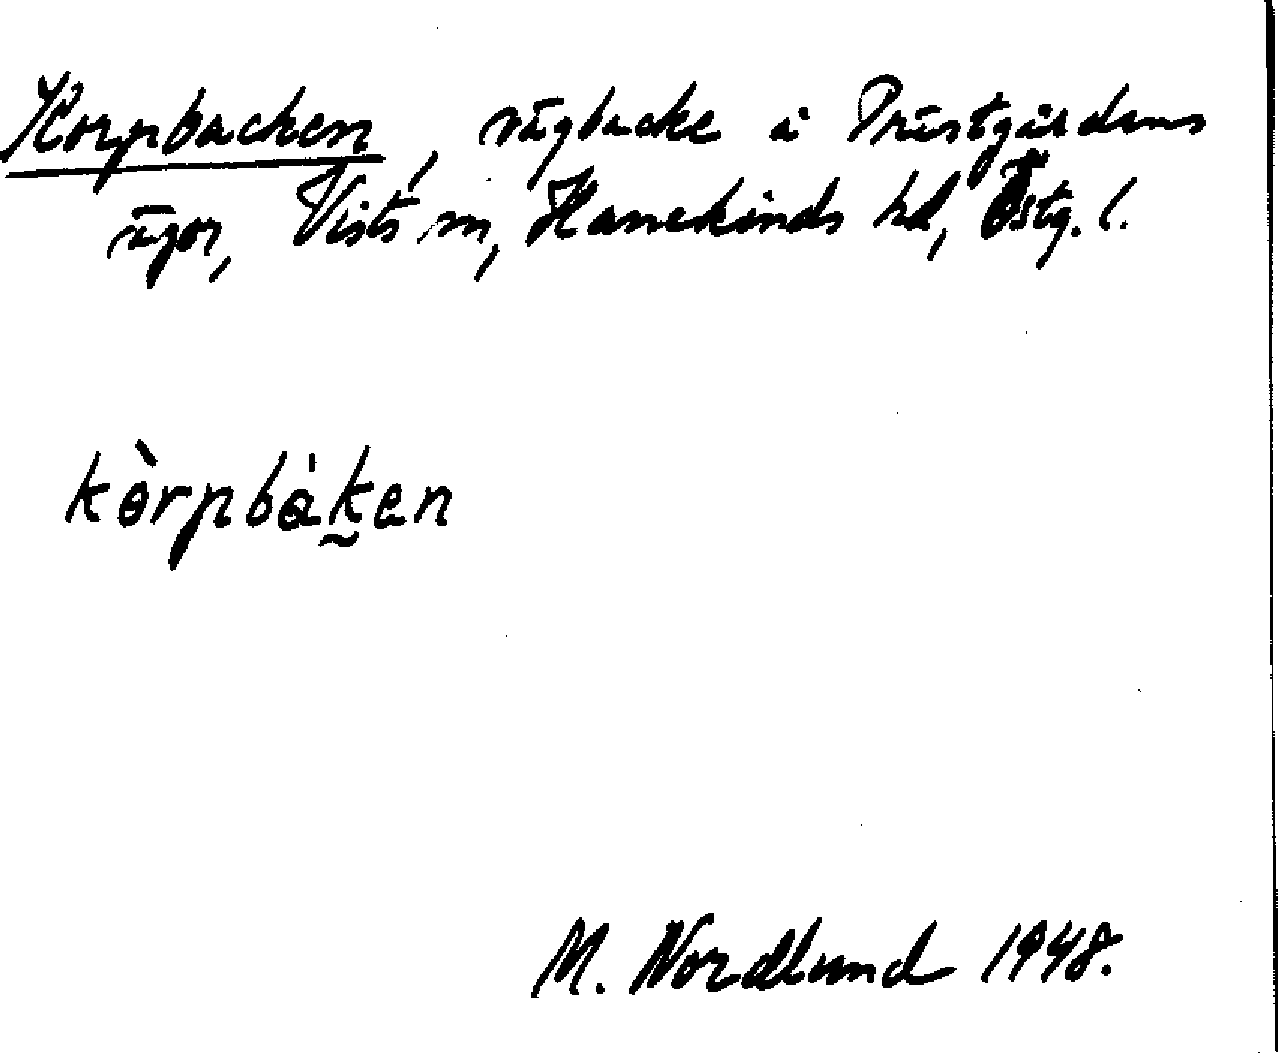 Korpbacken, vägbacke å Prästgårdens
ägor, Vists sn, Hanekinds hd, Östg. l.
kòrpbàken
M. Nordlund 1948.